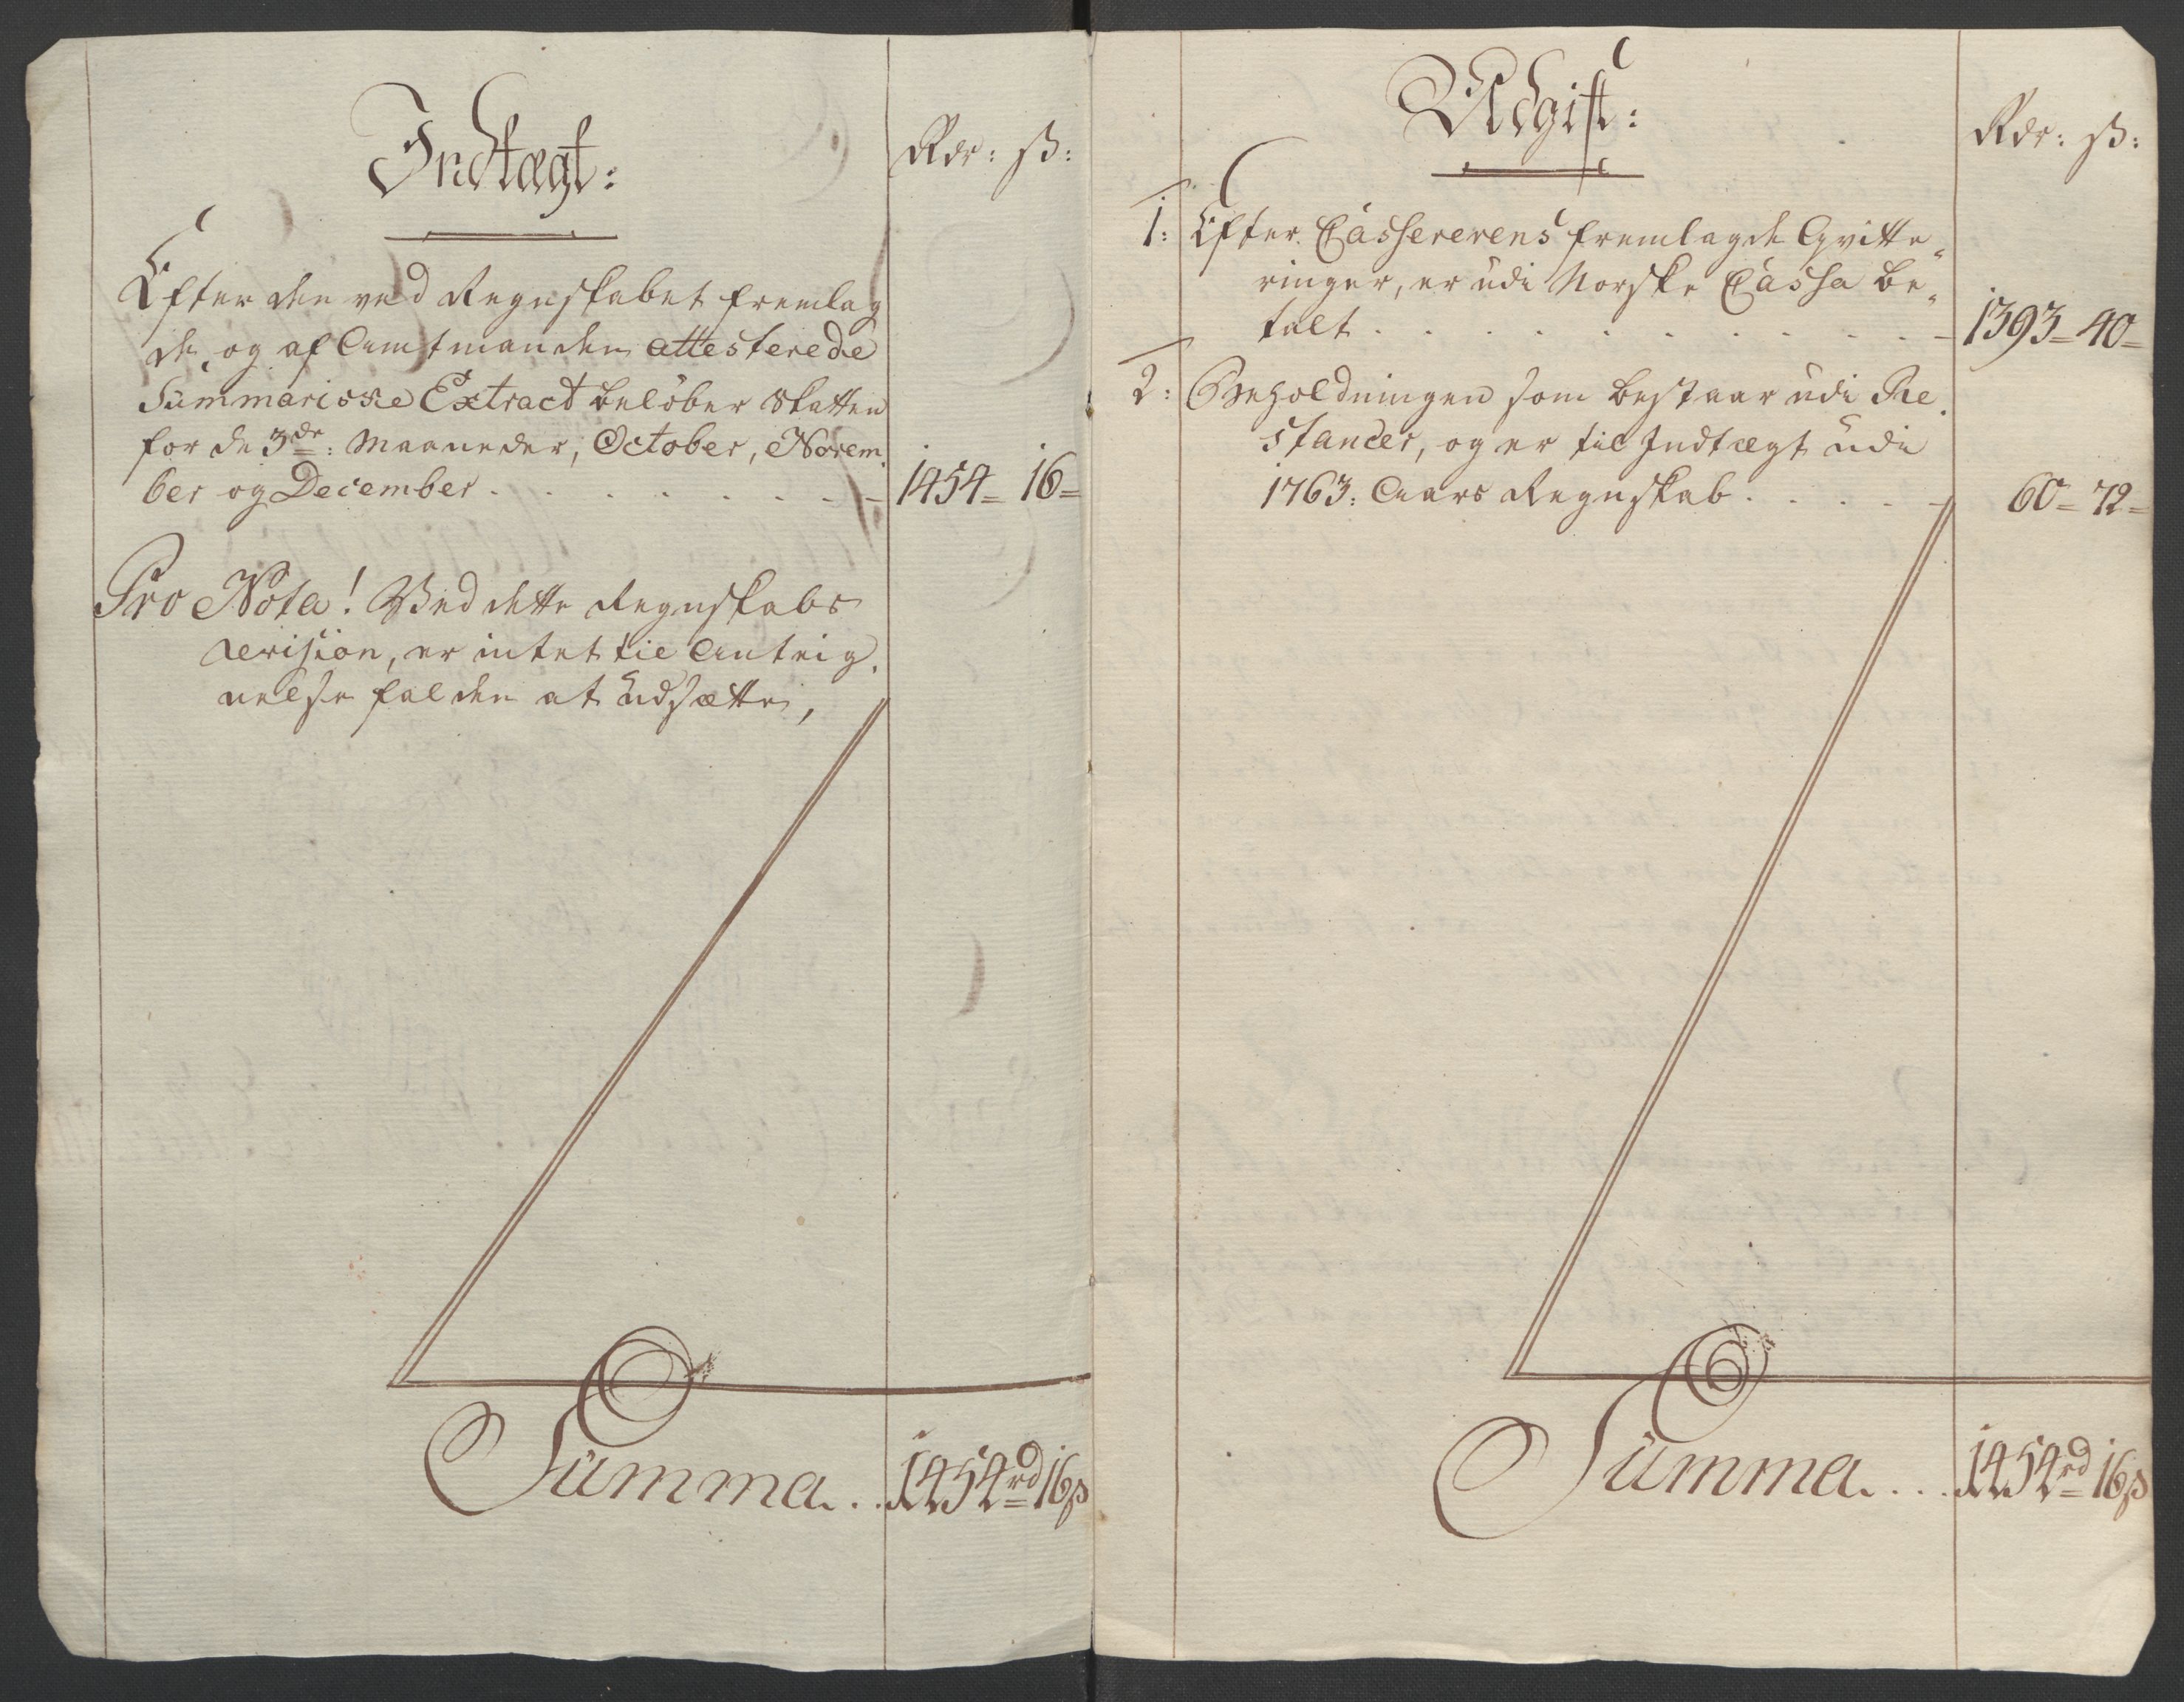 Indtægt:
Rdr: ß:
Efter den ved Regnskabet fremlag
de, og af Amtmanden attesterede
Summariske Extract beløber Skatten
for de 3de: Maaneder, October, Novem
ber og December . . . . . . . . 1454 = 16 =
Pro Nota! Ved dette Regnskabs
Revision, er intet til Anteig
nelse falden at udsætte,
Summa . . 1454rd 16ß
Udgift:
Rdr: ß:
1: Efter Cassererens fremlagde Qvitte
ringer, er udi Norske Cassa be
talt . . . . . . . . . . 1393 = 40 =
2: Beholdningen som bestaar udi Re
stancer, og er til Indtægt udi
1763: Aars Regnskab . . . . . 60 = 72 =
Summa . . . 1454rd 16ß